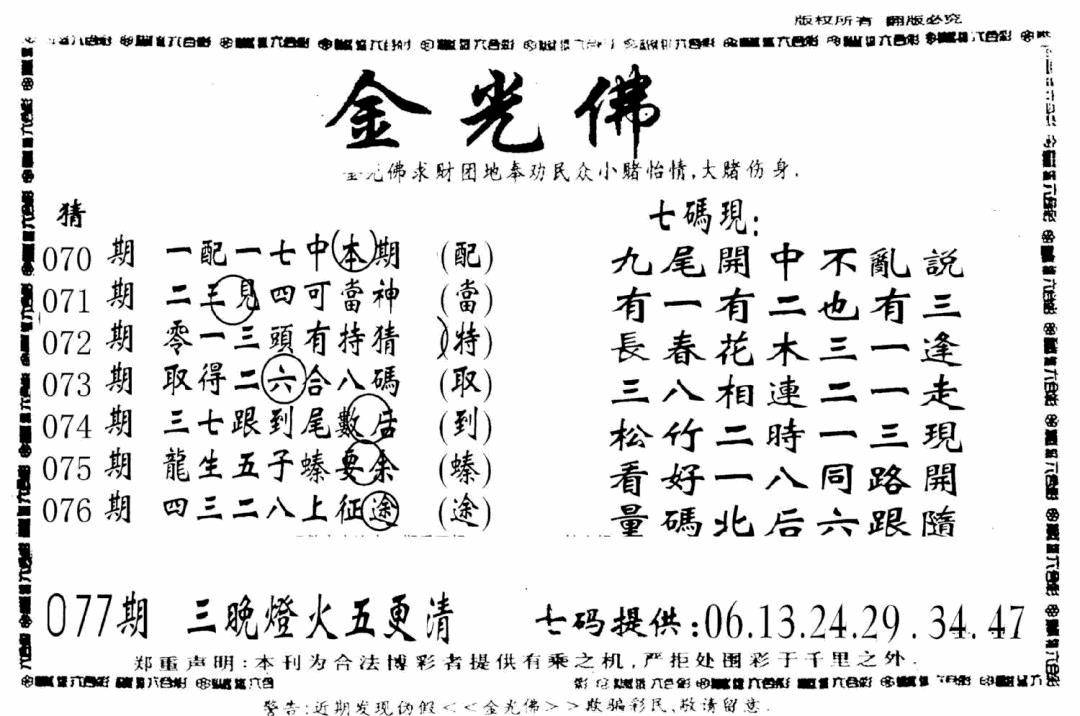 版权所有 翻版必究
金光佛
金光佛求财团地奉劝民众小赌怡情,大赌伤身.
猜
070期 一配一七中本期 (配)
071期 二三見四可當神 (當)
072期 零一三頭有持猜 (特)
073期 取得二六合八碼 (取)
074期 三七跟到尾數店 (到)
075期 龍生五子螓要余 (螓)
076期 四三二八上征途 (途)
七碼現:
九尾開中不亂説
有一有二也有三
長春花木三一逢
三八相連二一走
松竹二時一三現
看好一八同路開
量碼北后六跟隨
077期 三晚燈火五更清 七码提供:06.13.24.29.34.47
郑重声明:本刊为合法博彩者提供有乘之机,严拒处围彩于千里之外.
警告:近期发现伪假<<金光佛>>欺骗彩民,敬请留意.